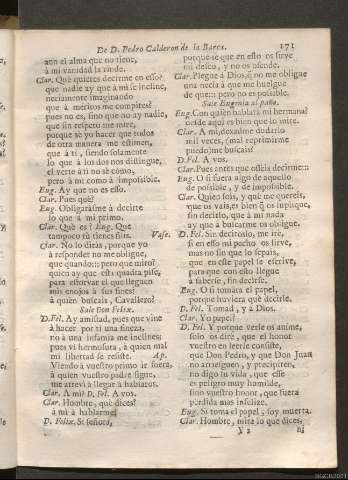 De D. Pedro Calderon de la Barca. 171
aun el alma que no tiene,
à mi vanidad la rinde.
Clar. Què quieres decirme en esso?
que nadie ay que à mi se incline,
neciamente imaginando
que à meritos me compites?
pues no es, sino que no ay nadie,
que sin respeto me mire,
porque sè yo hacer que todos
de otra manera me estimen,
que à ti, siendo solamente
lo que à los dos nos distingue,
el verte à ti no sè còmo,
pero à mi como à impossible.
Eug. Ay que no es esso.
Clar. Pues què?
Eug. Obligaràsme à decirte
lo que à mi primo.
Clar. Què es? Eug. Que
tampoco tù tienes esto. Vase.
Clar. No lo diràs, porque yo
à responder no me obligue,
que quando::: pero que miro?
quien ay que esta quadra pise,
para estorvar el que lleguen
mis enojos à sus fines?
à quièn buscais, Cavallero?
Sale Don Felix.
D. Fel. Ay amistad, pues que vine
à hacer por ti una fineza,
no à una infamia me inclines;
pues vi hermosura, à quien mal
mi libertad se resiste. Ap.
Viendo à vuestro primo ir fuera,
à quien vuestro padre sigue,
me atrevì à llegar à hablaros.
Clar. A mi? D. Fel. A vos.
Clar. Hombre, què dices?
à mi à hablarme?
D. Felix. Si señora,
porque se que en esto os sirve
mi deseo, y no os ofende.
Clar. Plegue à Dios, q̃ no me obligue
una necia à que me huelgue
de que::: pero no es possible.
Sale Eugenia al paño.
Eug. Con quièn hablarà mi hermana?
desde aqui es bien que lo mire.
Clar. A mi, dexadme dudarlo
mil veces, (mal reprimirme
puedo) me buscais?
D. Fel. A vos.
Clar. Pues antes que osseis decirme::
Eug. O si fuera algo de aquello
de possible, y de impossible.
Clar. Quien sois, y què me quereis,
que os vais, es bien q̃ os suplique,
sin decirlo, que à mi nada
ay que à buscarme os obligue.
D. Fel. Sin decirlo, me irè,
si en esso mi pecho os sirve,
mas no sin que lo sepais,
que en este papel se escrive,
para que con esto llegue
à saberse, sin decirse.
Eug. O si tomàra el papel,
porque huviera què decirle.
D. Fel. Tomad, y à Dios.
Clar. Yo papel?
D. Fel. Y porque verle os anime,
solo os dirè, que el honor
vuestro en leerle consiste,
que Don Pedro, y que Don Juan
no arriesguen, y precipiten,
no digo su vida, que esse
es peligro muy humilde,
sino vuestro honor, que fuera
perdida mas infelize.
Eug. Si toma el papel, soy muerta.
Clar. Hombre, mira lo que dices,
Y 2 ni